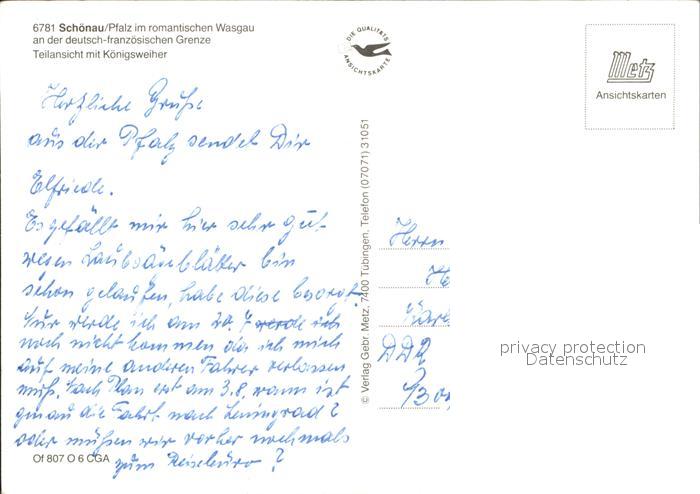 6781 Schönau/Pfalz im romantischen Wasgau
an der deutsch-französischen Grenze
Teilansicht mit Königsweiher
DIE QUALITÄTS
ANSICHTSKARTE
Metz
Ansichtskarten
Herzliche Grüße
aus der Pfalz sendet Dir
Elfriede.
Es gefällt mir hier sehr gut
wegen Laubsägeblätter bin
schon gelaufen, habe diese besorgt.
Nur werde ich am 20. 7 werde ich
noch nicht kommen da ich mich
auf meine anderen Fahrer verlassen
muß. Nach Plan erst am 3.8. wann ist
genau die Fahrt nach Leningrad?
oder müßen wir vorher nochmals
zum Reisebüro?
Of 807 O 6 CGA
© Verlag Gebr. Metz, 7400 Tübingen, Telefon (07071) 31051
Herrn
DDR
privacy protection
Datenschutz